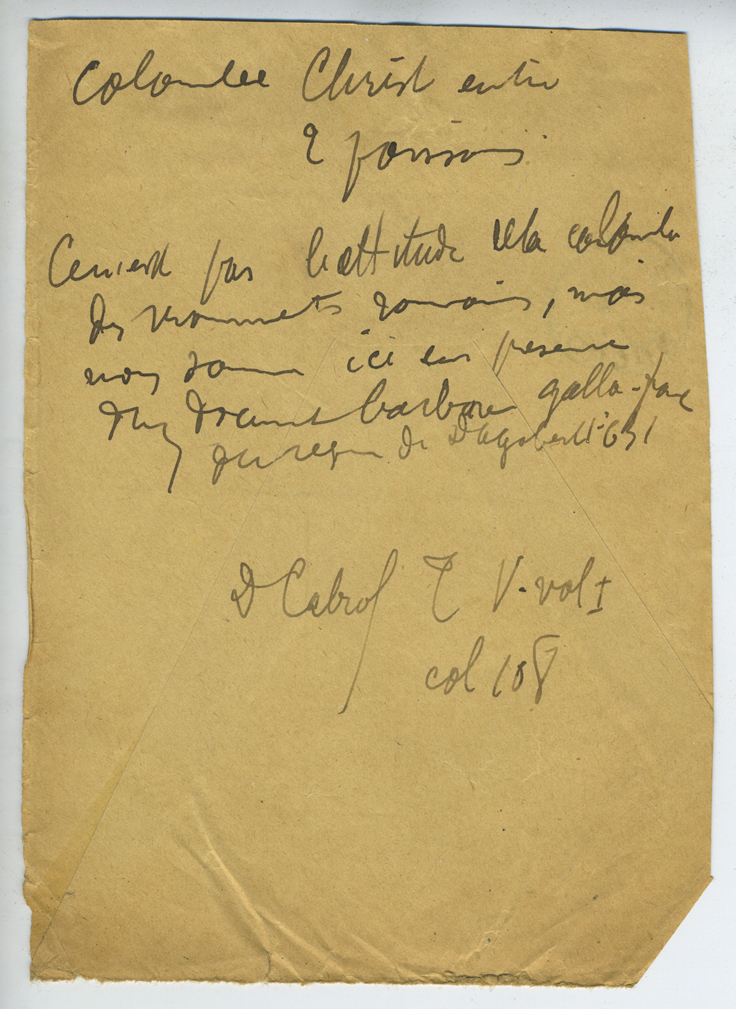 Colombe Christ entre
2 poissons
Ce n'est pas l'attitude de la colombe
des monuments romains, mais
nous sommes ici en présence
d'un barbare gallo-franc
du règne de Dagobert 1er 631
D Cabrol T V. vol I
col 108